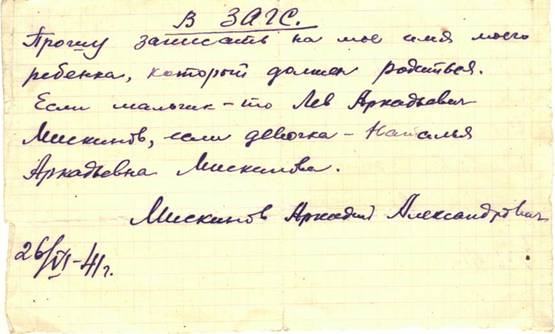 В ЗАГС.
Прошу записать на мое имя моего
ребенка, который должен родиться.
Если мальчик – то Лев Аркадьевич
Мискинов, если девочка – Наталья
Аркадьевна Мискинова.
Мискинов Аркадий Александрович
26/VI – 41 г.